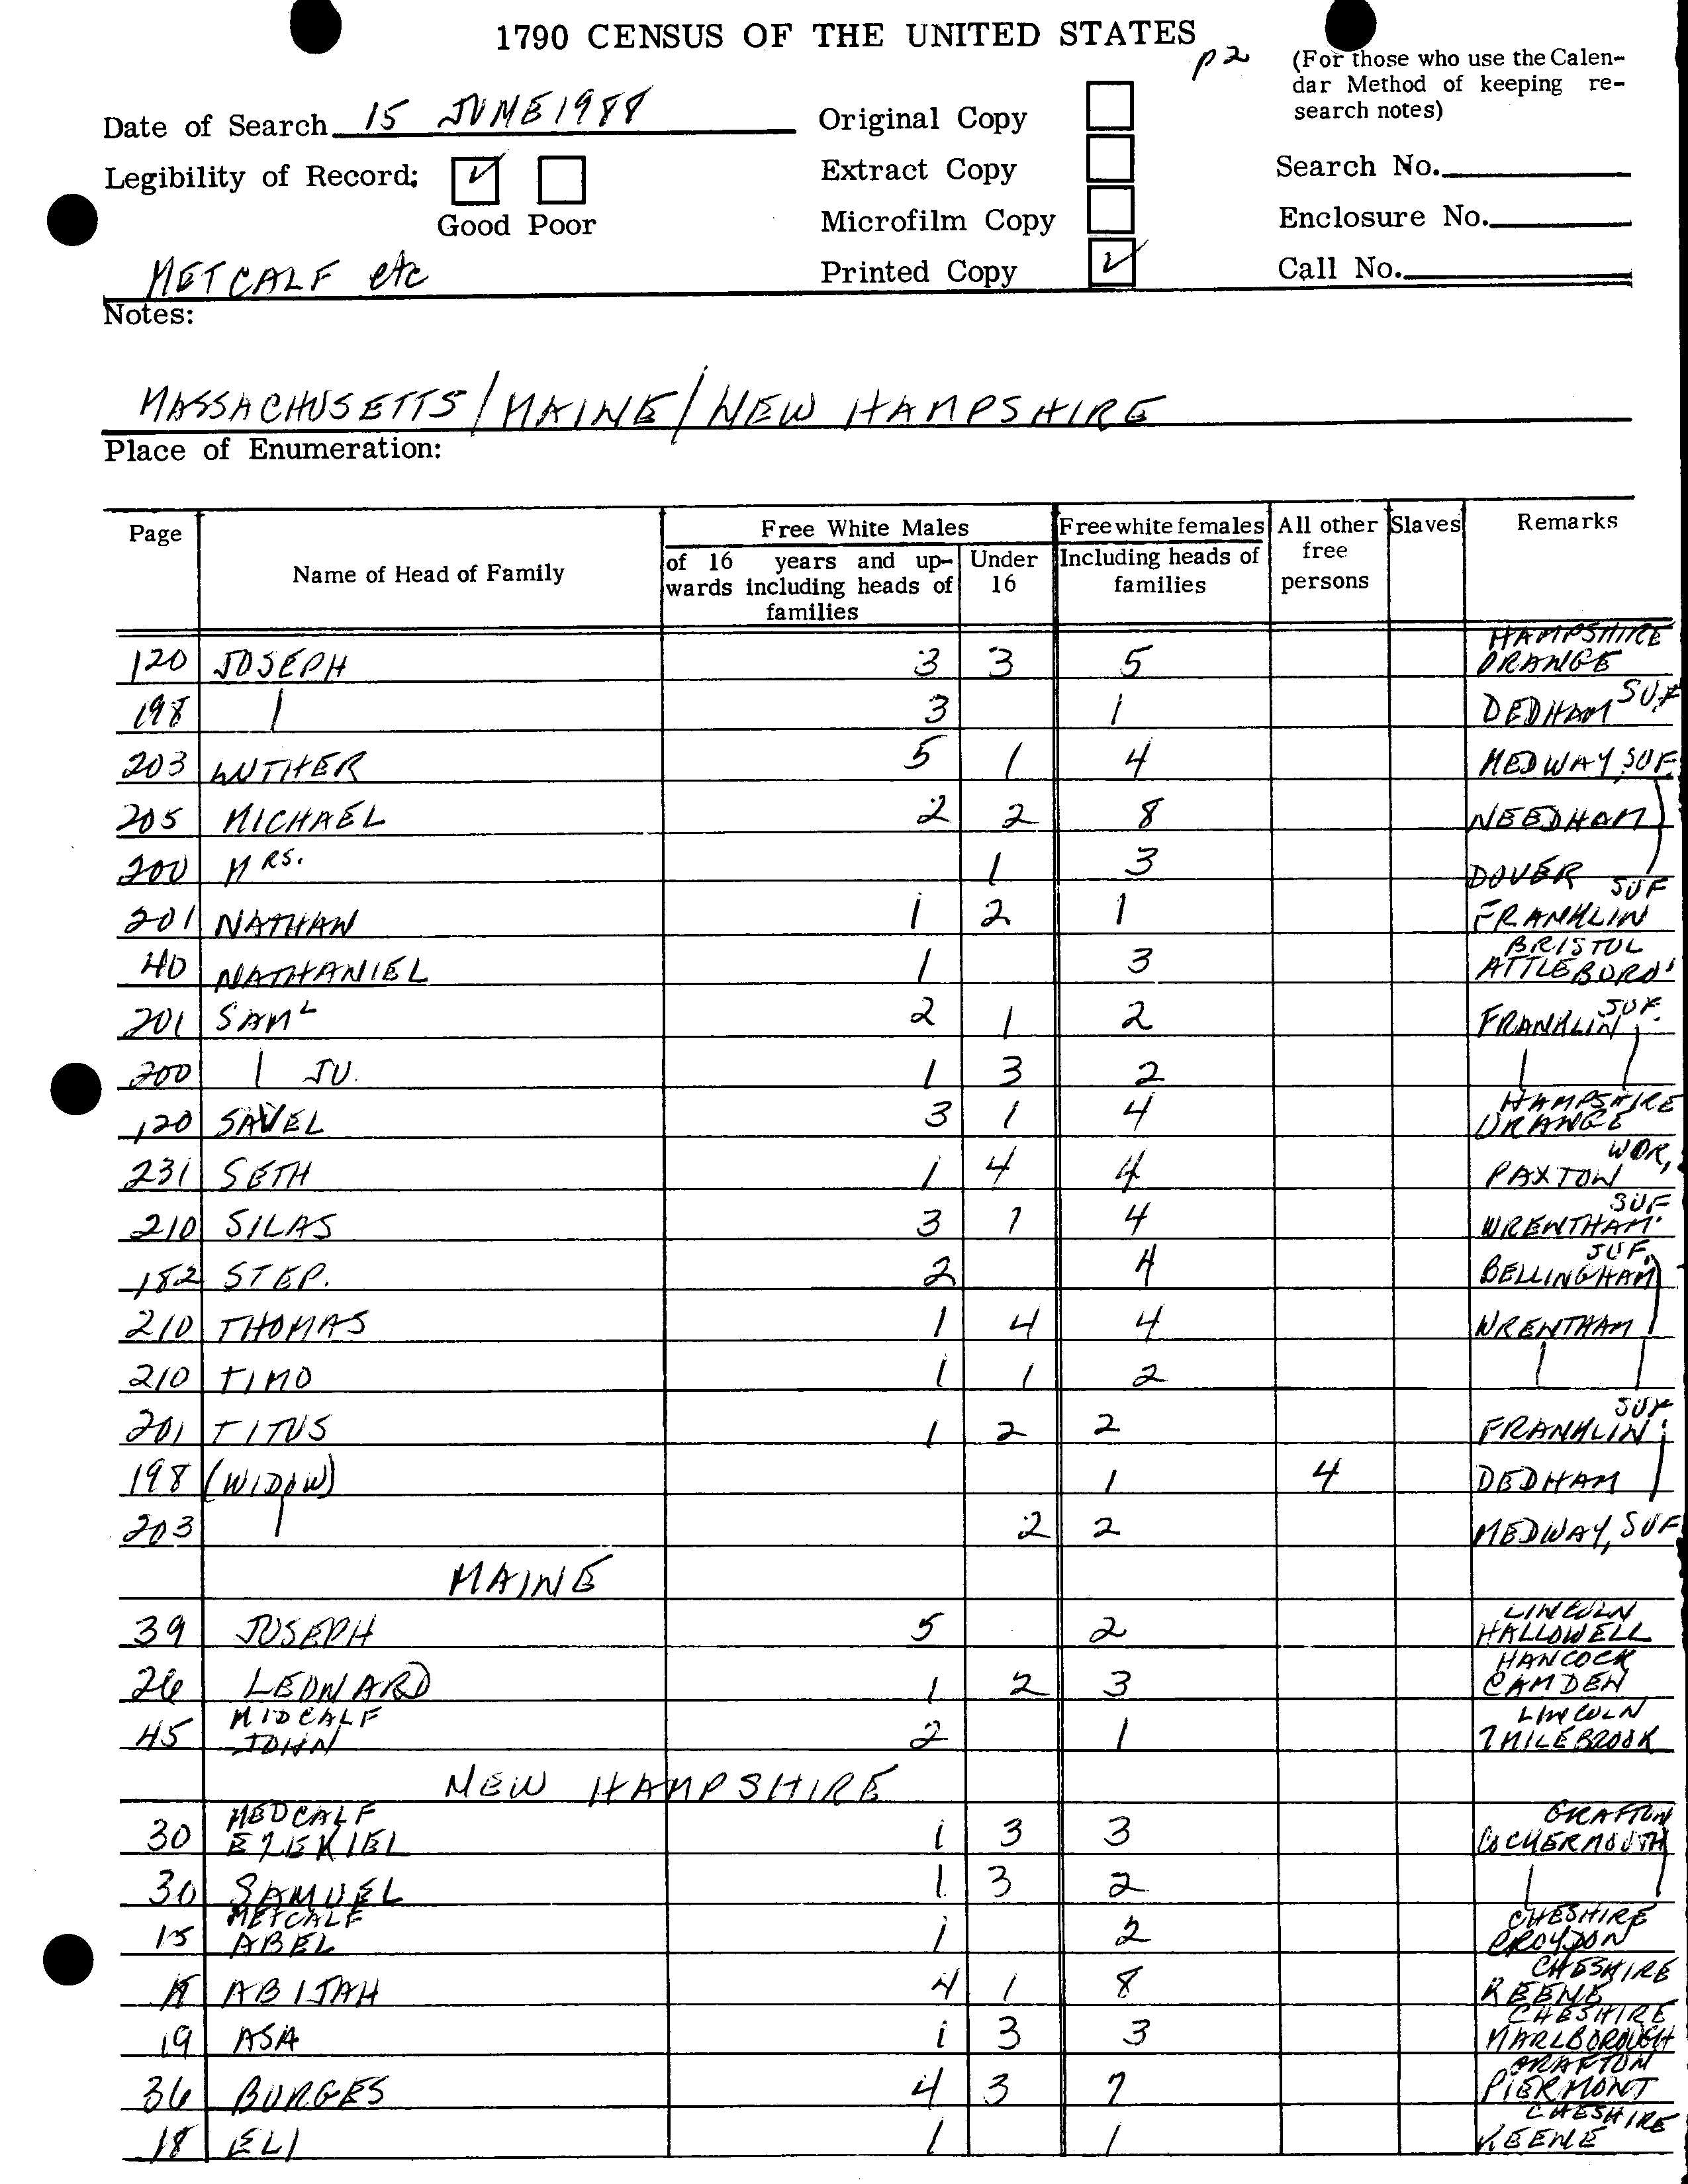 1790 CENSUS OF THE UNITED STATES
p 2
(For those who use the Calen-
dar Method of keeping re-
search notes)
Date of Search 15 JUNE 1988
Original Copy
Legibility of Record:
Extract Copy
Search No.
Good Poor
Microfilm Copy
Enclosure No.
METCALF etc
Printed Copy
Call No.
Notes:
MASSACHUSETTS / MAINE / NEW HAMPSHIRE
Place of Enumeration:
Page Name of Head of Family Free White Males Free white females All other Slaves Remarks
of 16 years and up- Under Including heads of free
wards including heads of 16 families persons
families
HAMPSHIRE
120 JOSEPH 3 3 5 ORANGE
198 | 3 1 DEDHAM SUF
203 LUTHER 5 1 4 MEDWAY, SUF
205 MICHAEL 2 2 8 NEEDHAM
200 MRS. 1 3 DOVER
SUF
201 NATHAN 1 2 1 FRANKLIN
BRISTOL
40 NATHANIEL 1 3 ATTLEBORO'
201 SAML 2 1 2 FRANKLIN SUF.
200 | JU. 1 3 2 |
HAMPSHIRE
120 SAVEL 3 1 4 ORANGE
WOR,
231 SETH 1 4 4 PAXTON
SUF
210 SILAS 3 1 4 WRENTHAM
SUF,
182 STEP. 2 4 BELLINGHAM
210 THOMAS 1 4 4 WRENTHAM
210 TIMO 1 1 2 |
SUF
201 TITUS 1 2 2 FRANKLIN
198 (WIDOW) 1 4 DEDHAM
203 | 2 2 MEDWAY, SUF
MAINE
LINCOLN
39 JOSEPH 5 2 HALLOWELL
HANCOCK
26 LEONARD 1 2 3 CAMDEN
MIDCALF LINCOLN
45 JOHN 2 1 7 MILE BROOK
NEW HAMPSHIRE
MEDCALF GRAFTON
30 EZEKIEL 1 3 3 COCKERMOUTH
30 SAMUEL 1 3 2 |
METCALF CHESHIRE
15 ABEL 1 2 CROYDON
CHESHIRE
ABIJAH 4 1 8 KEENE
CHESHIRE
19 ASA 1 3 3 MARLBOROUGH
GRAFTON
36 BURGES 4 3 7 PIERMONT
CHESHIRE
18 ELI 1 1 KEENE